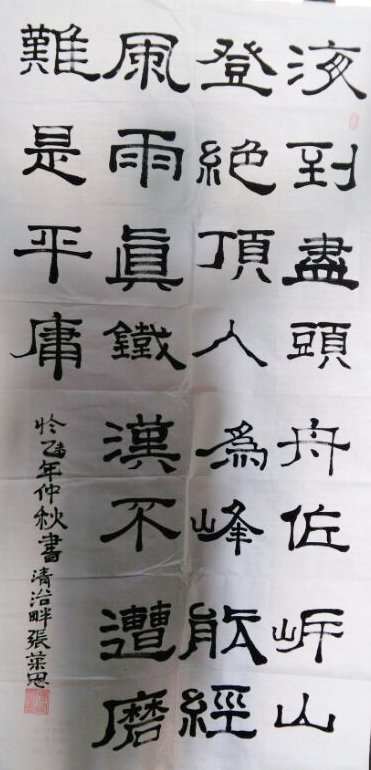 海到盡頭舟作岸山
登絶頂人為峰能經
風雨眞鐵漢不遭磨
難是平庸
於乙未年仲秋書清沿畔張恩